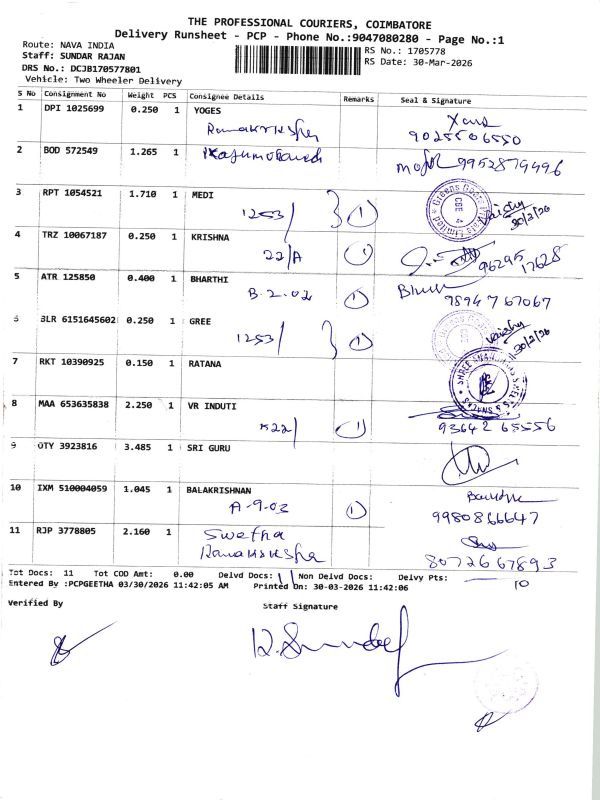 THE PROFESSIONAL COURIERS, COIMBATORE
Delivery Runsheet - PCP - Phone No.:9047080280 - Page No.:1
Route: NAVA INDIA
RS No.: 1705778
Staff: SUNDAR RAJAN
RS Date: 30-Mar-2026
DRS No.: DCJB170577801
Vehicle: Two Wheeler Delivery
S No Consignment No Weight PCS Consignee Details Remarks Seal & Signature
1 DPI 1025699 0.250 1 YOGES
Ramakrishna 9025506550
2 BOD 572549 1.265 1
9952879496
3 RPT 1054521 1.710 1 MEDI
1253/ 1 Vaishy 30/3/26
4 TRZ 10067187 0.250 1 KRISHNA
22/A 1 96295 17628
5 ATR 125850 0.400 1 BHARTHI
B-2-02 1 98947 67067
6 BLR 6151645602 0.250 1 GREE
1253/ 1 Vaishy 30/3/26
7 RKT 10390925 0.150 1 RATANA
8 MAA 653635838 2.250 1 VR INDUTI
1522/ 1 93642 65556
9 OTY 3923816 3.485 1 SRI GURU
10 IXM 510004059 1.045 1 BALAKRISHNAN
A-9-03 1 9980866647
11 RJP 3778805 2.160 1 Swetha
8072667893
Tot Docs: 11 Tot COD Amt: 0.00 Delvd Docs: 11 Non Delvd Docs: Delvy Pts: 10
Entered By :PCPGEETHA 03/30/2026 11:42:05 AM Printed On: 30-03-2026 11:42:06
Verified By Staff Signature